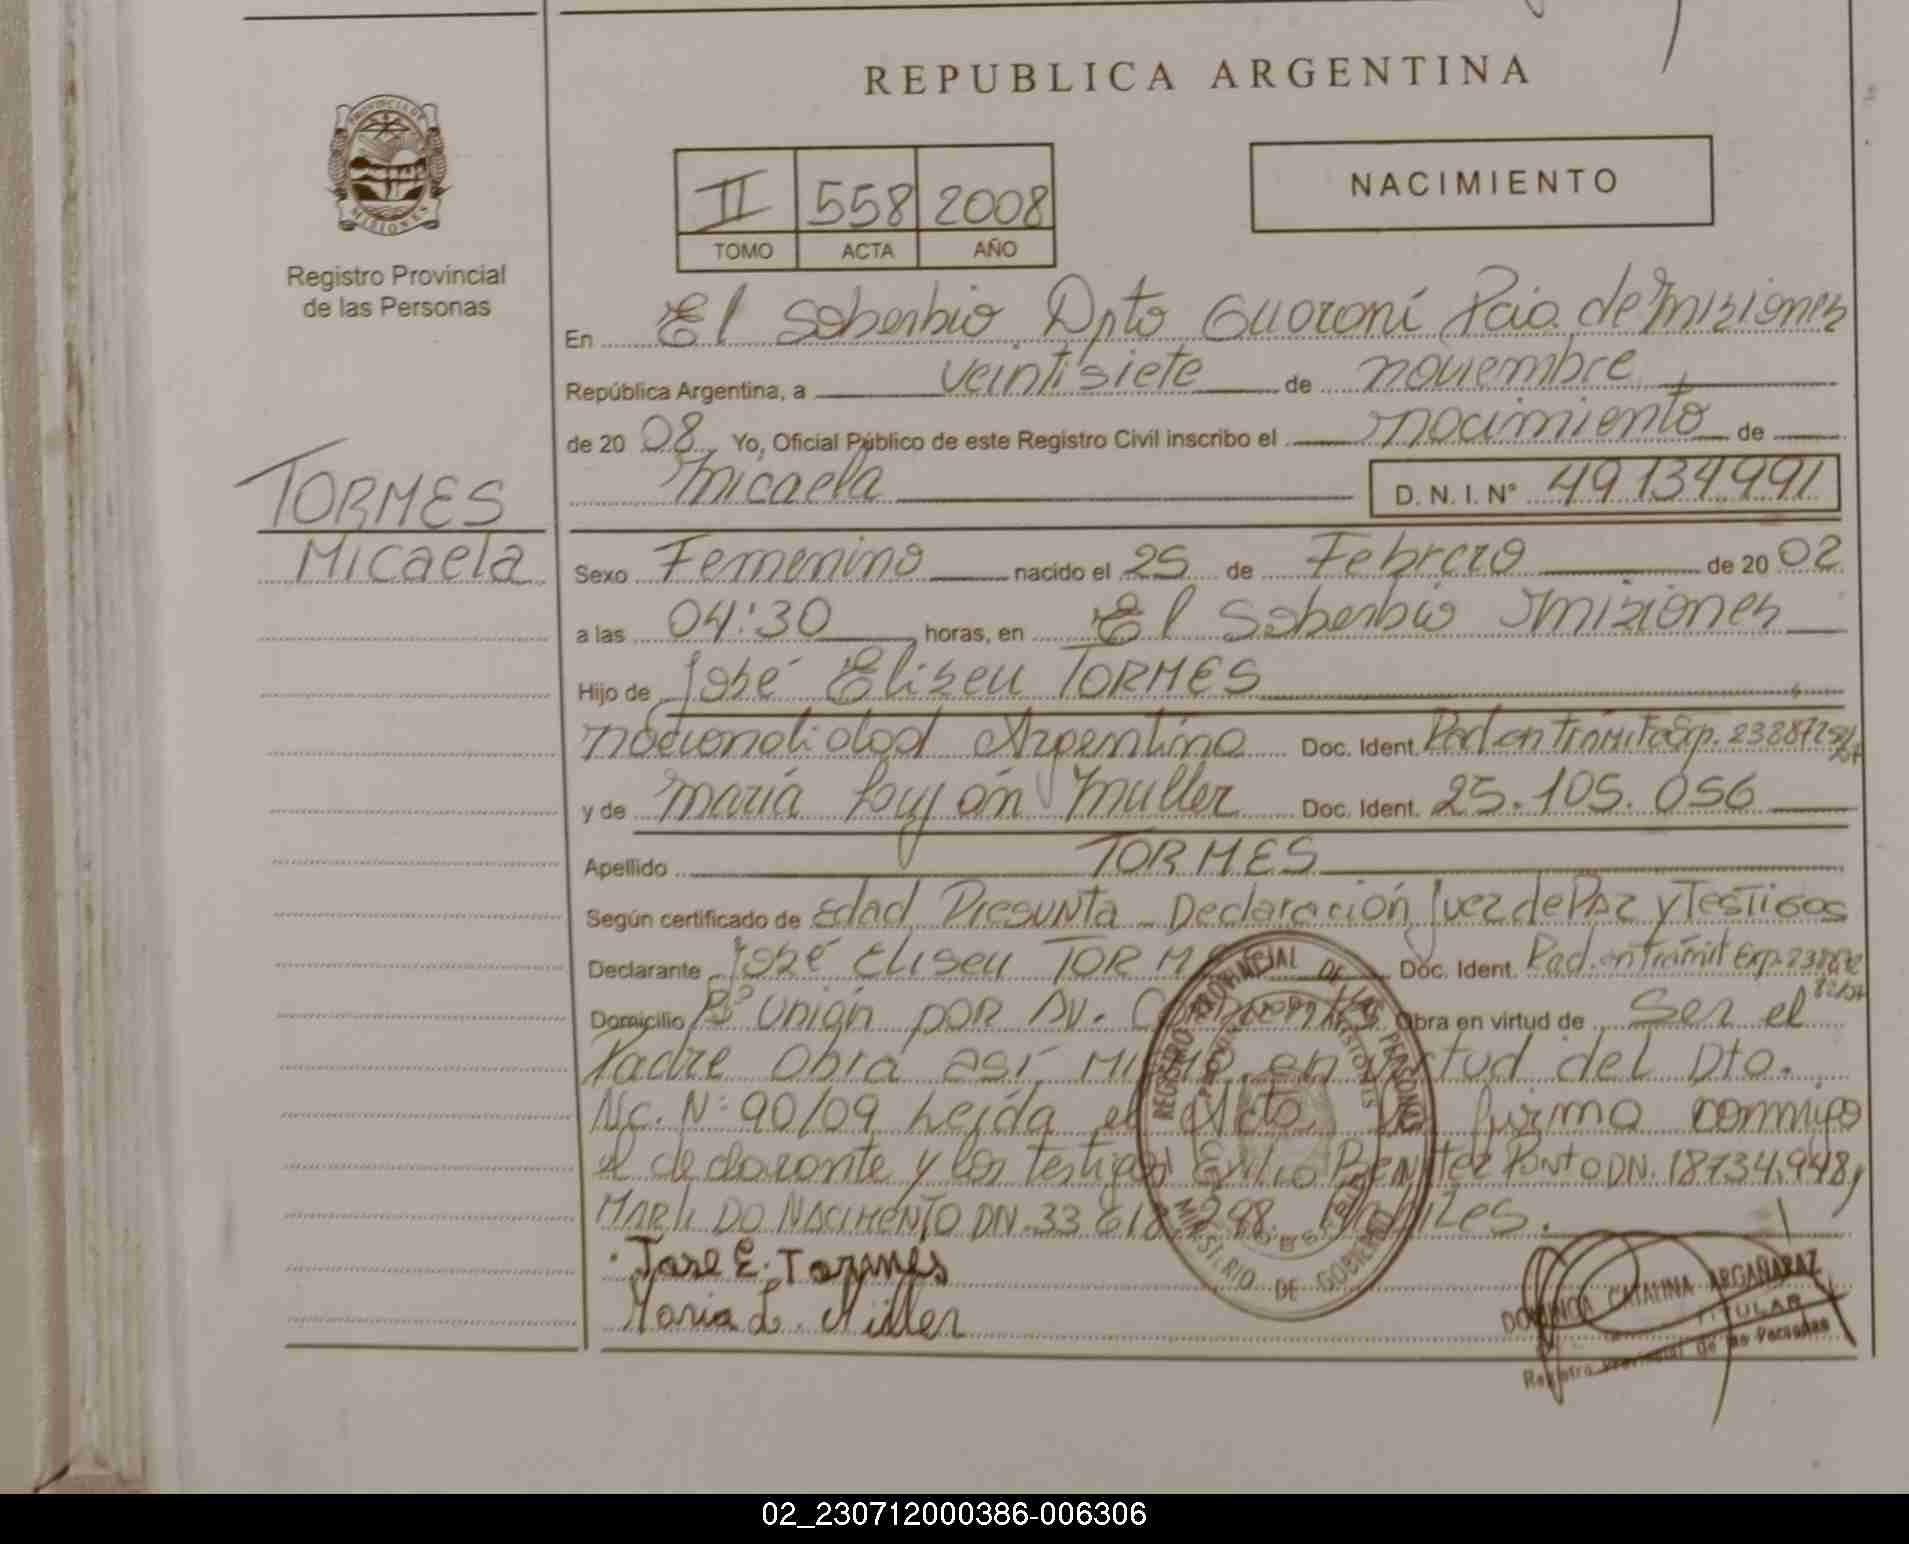 REPUBLICA ARGENTINA
PROVINCIA DE
MISIONES
Registro Provincial
de las Personas
II 558 2008
TOMO ACTA AÑO
NACIMIENTO
En El Soberbio Dpto Guaraní Pcia de Misiones
República Argentina, a veintisiete de noviembre
de 20 08 Yo, Oficial Público de este Registro Civil inscribo el nacimiento de
Micaela D. N. I. N° 49134991
TORMES
Micaela
Sexo Femenino nacido el 25 de Febrero de 20 02
a las 04:30 horas, en El Soberbio Misiones
Hijo de José Eliseu TORMES
nacionalidad Argentina Doc. Ident. Rad. en Trámite Exp.
y de María Muller Doc. Ident. 25.105.056
Apellido TORMES
Según certificado de Edad Presunta Declaración Juez de Paz y Testigos
Declarante José Eliseu TORMES Doc. Ident. Rad. en Trámit Exp.
Domicilio B° Unión por Av. Obra en virtud de Ser el
Padre Obra así Mismo en virtud del Dto.
Nc. N: 90/09 Leída el Acta firma conmigo
el declarante y los testigos Benitez Ponto DN. 18734.948,
DO NACIMENTO DN. 33 618.298. Hábiles.
Jose E. Tormes
Maria L. Miller
REGISTRO PROVINCIAL DE LAS PERSONAS
MINISTERIO DE GOBIERNO
CATALINA ARGAÑARAZ
TITULAR
Registro Provincial de las Personas
02_230712000386-006306